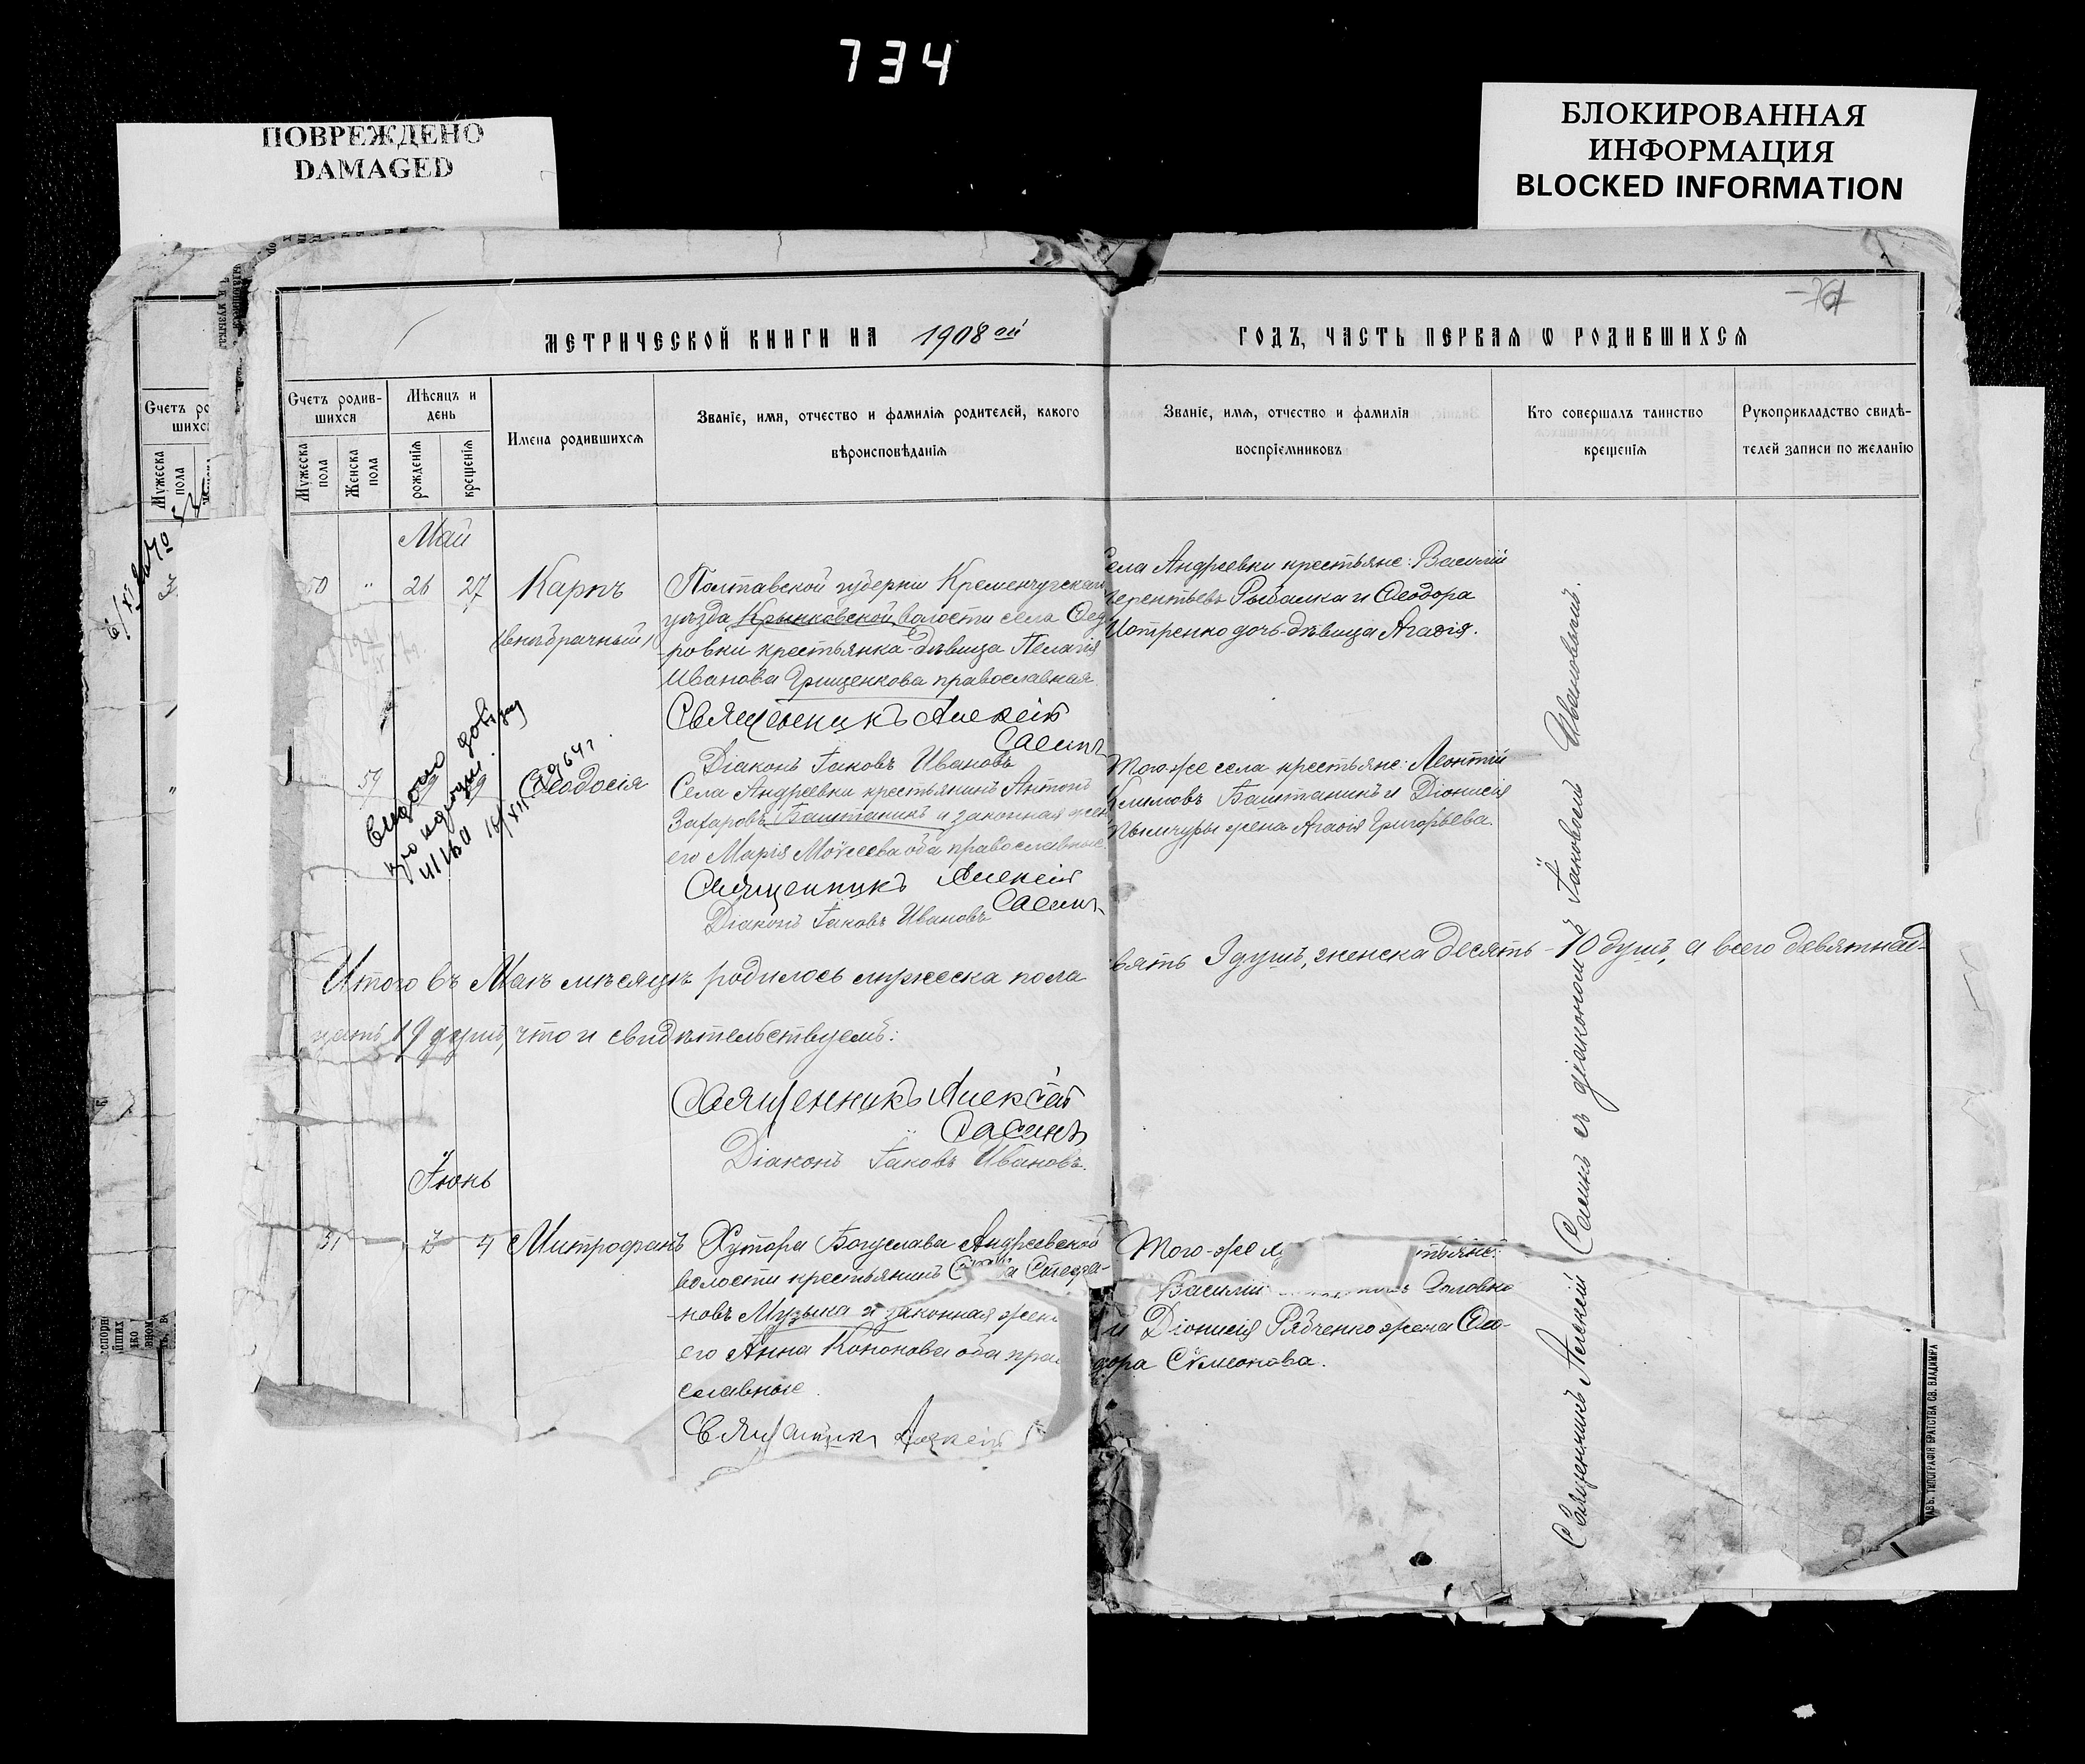 734
ПОВРЕЖДЕНО
DAMAGED
БЛОКИРОВАННАЯ
ИНФОРМАЦИЯ
BLOCKED INFORMATION
МЕТРИЧЕСКОЙ КНИГИ НА 1908 ой ГОДЪ, ЧАСТЬ ПЕРВАЯ Ѡ РОДИВШИХСЯ
Счетъ родив-
шихся
Мужеска пола
Женска пола
Мѣсяцъ и день
рожденія
крещенія
Имена родившихся
Званіе, имя, отчество и фамилія родителей, какого
вѣроисповѣданія
Званіе, имя, отчество и фамилія
воспріемниковъ
Кто совершалъ таинство
крещенія
Рукоприкладство свидѣ-
телей записи по желанію
Май
50 " 26 27 Карпъ
(внѣбрачный)
Полтавской губерніи Кременчугскаго
уѣзда Крынковской волости села Ѳед
ровки крестьянка-дѣвица Пелагія
Иванова Грищенкова православная
Священникъ Алексій
Сасинъ
Діаконъ Іаковъ Ивановъ
Села Андреевки крестьяне: Василій
Терентьевъ Рыбалка и Ѳеодора
дочь-дѣвица Агафія.
59 Ѳеодосія
Села Андреевки крестьянинъ Антонъ
Захаровъ Баштаникъ и законная жен
его Марія Моѵсеева оба православные.
Священникъ Алексій
Сасинъ
Діаконъ Іаковъ Ивановъ
Того-же села крестьяне: Леонтій
Климовъ Баштаникъ и Діонисія
жена Агафія Григорьева.
Итого въ Маѣ мѣсяцѣ родилось мужеска пола
вять 9 душъ, женска десять - 10 душъ, а всего девятнад-
цать 19 душъ, что и свидѣтельствуемъ:
Священникъ Алексій
Сасинъ
Діаконъ Іаковъ Ивановъ.
Іюнь
51 3 4 Митрофанъ
Хутора Богуслава Андреевской
волости крестьянинъ Стефа-
новъ Музыка и законная жена
его Анна Кононова оба пра
славные.
Священникъ Алексій
Того-же
тьяне:
Василій Головко
и Діонисія Рябченко жена Ѳео-
дора Сѵмеонова.
Священникъ Алексій Сасинъ съ діакономъ Іаковомъ Ивановымъ.
ТИПОГРАФІЯ БРАТСТВА СВ. ВЛАДИМІРА